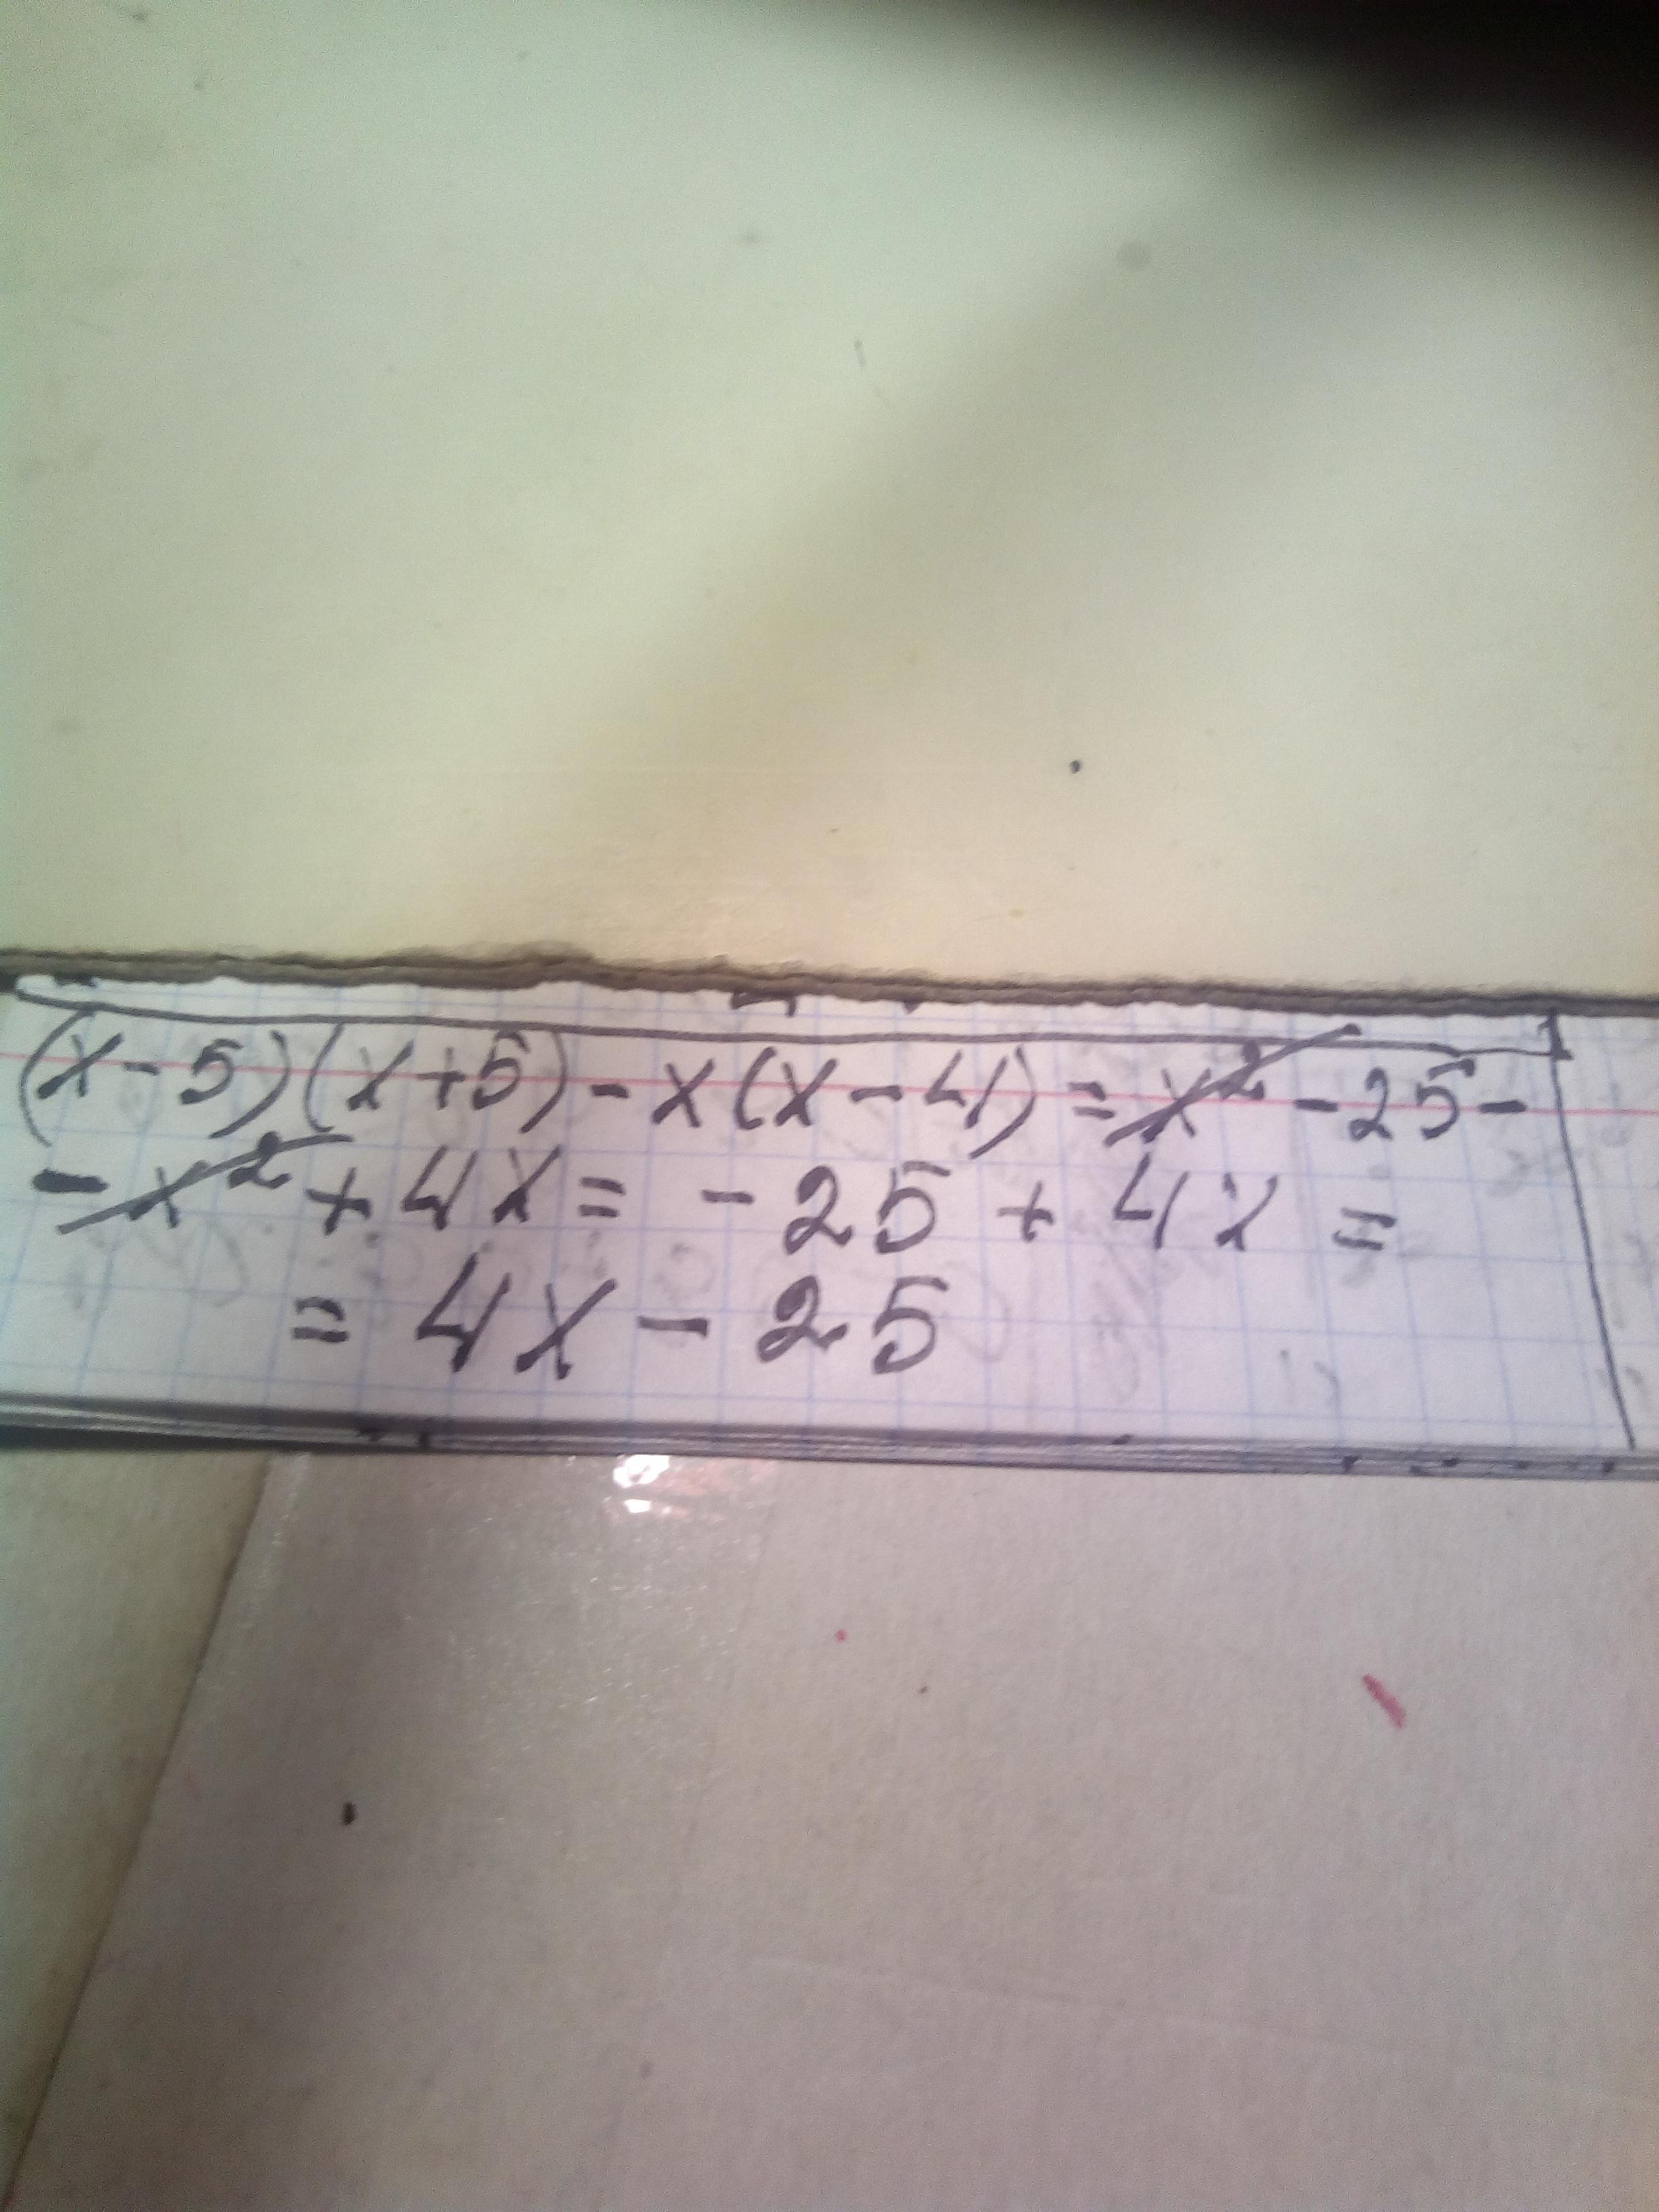 (x-5)(x+5)-x(x-4)=x²-25-
-x²+4x=-25+4x=
=4x-25